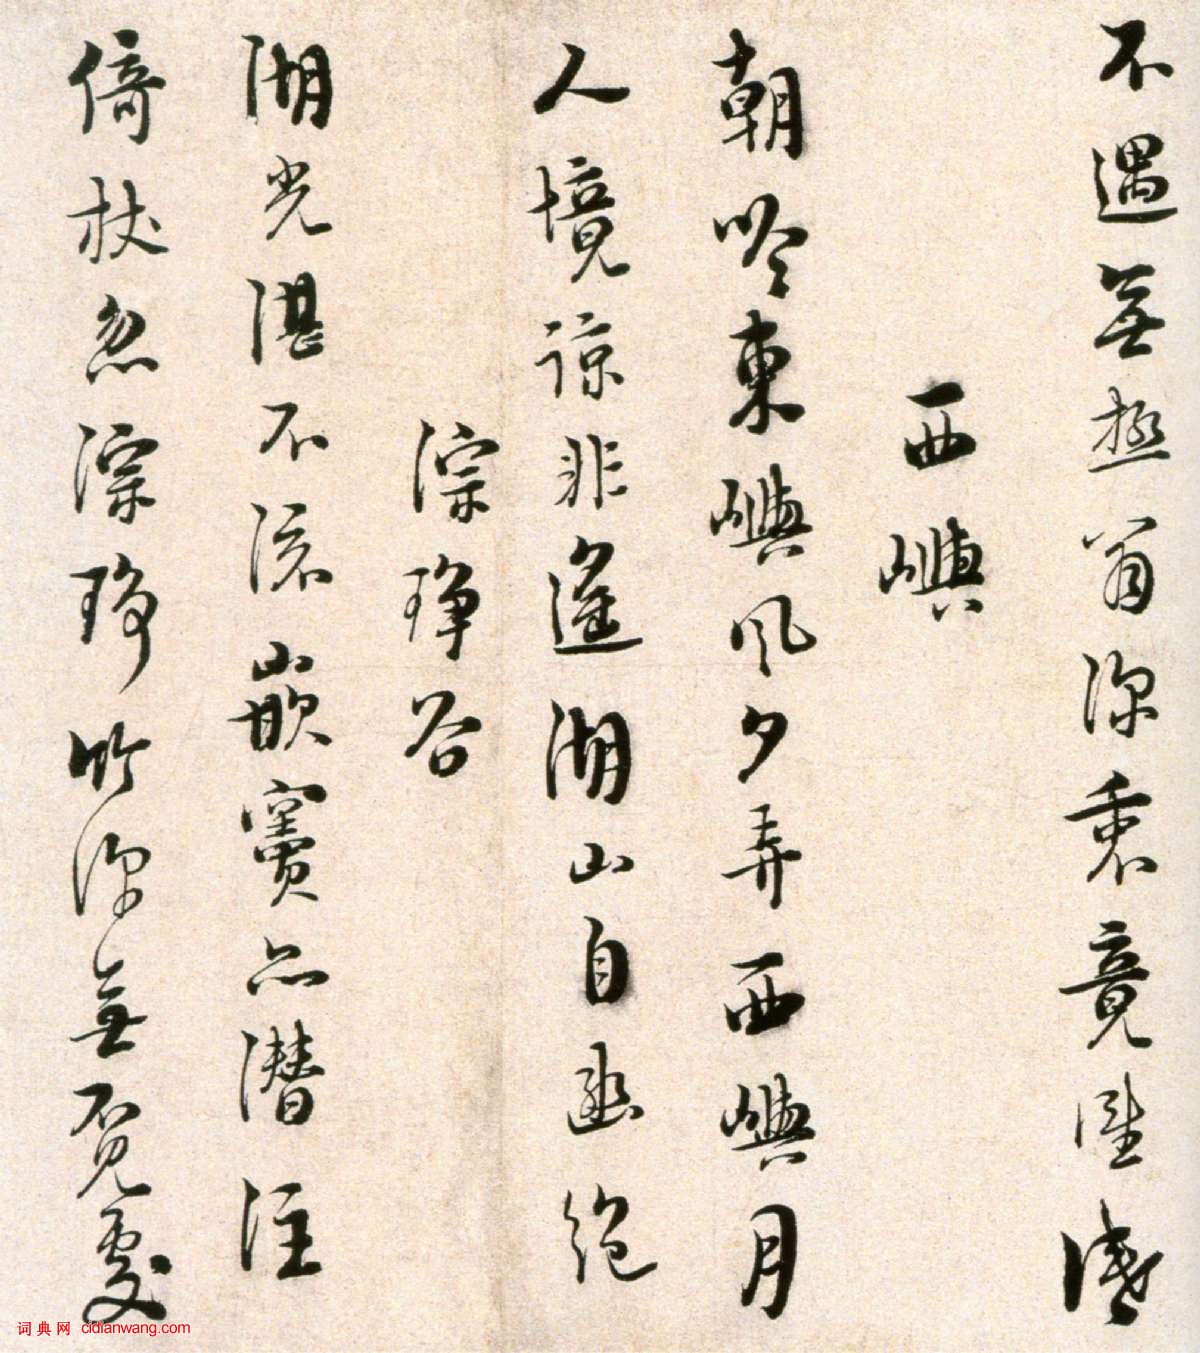 不遇無極翁深衷竟誰識
西嶼
朝吟東嶼風夕弄西嶼月
人境諒非遙湖山自幽絕
淙琤谷
湖光湛不流嵌竇亦潛注
倚杖忽淙琤竹深無覓處
词典网 cidianwang.com